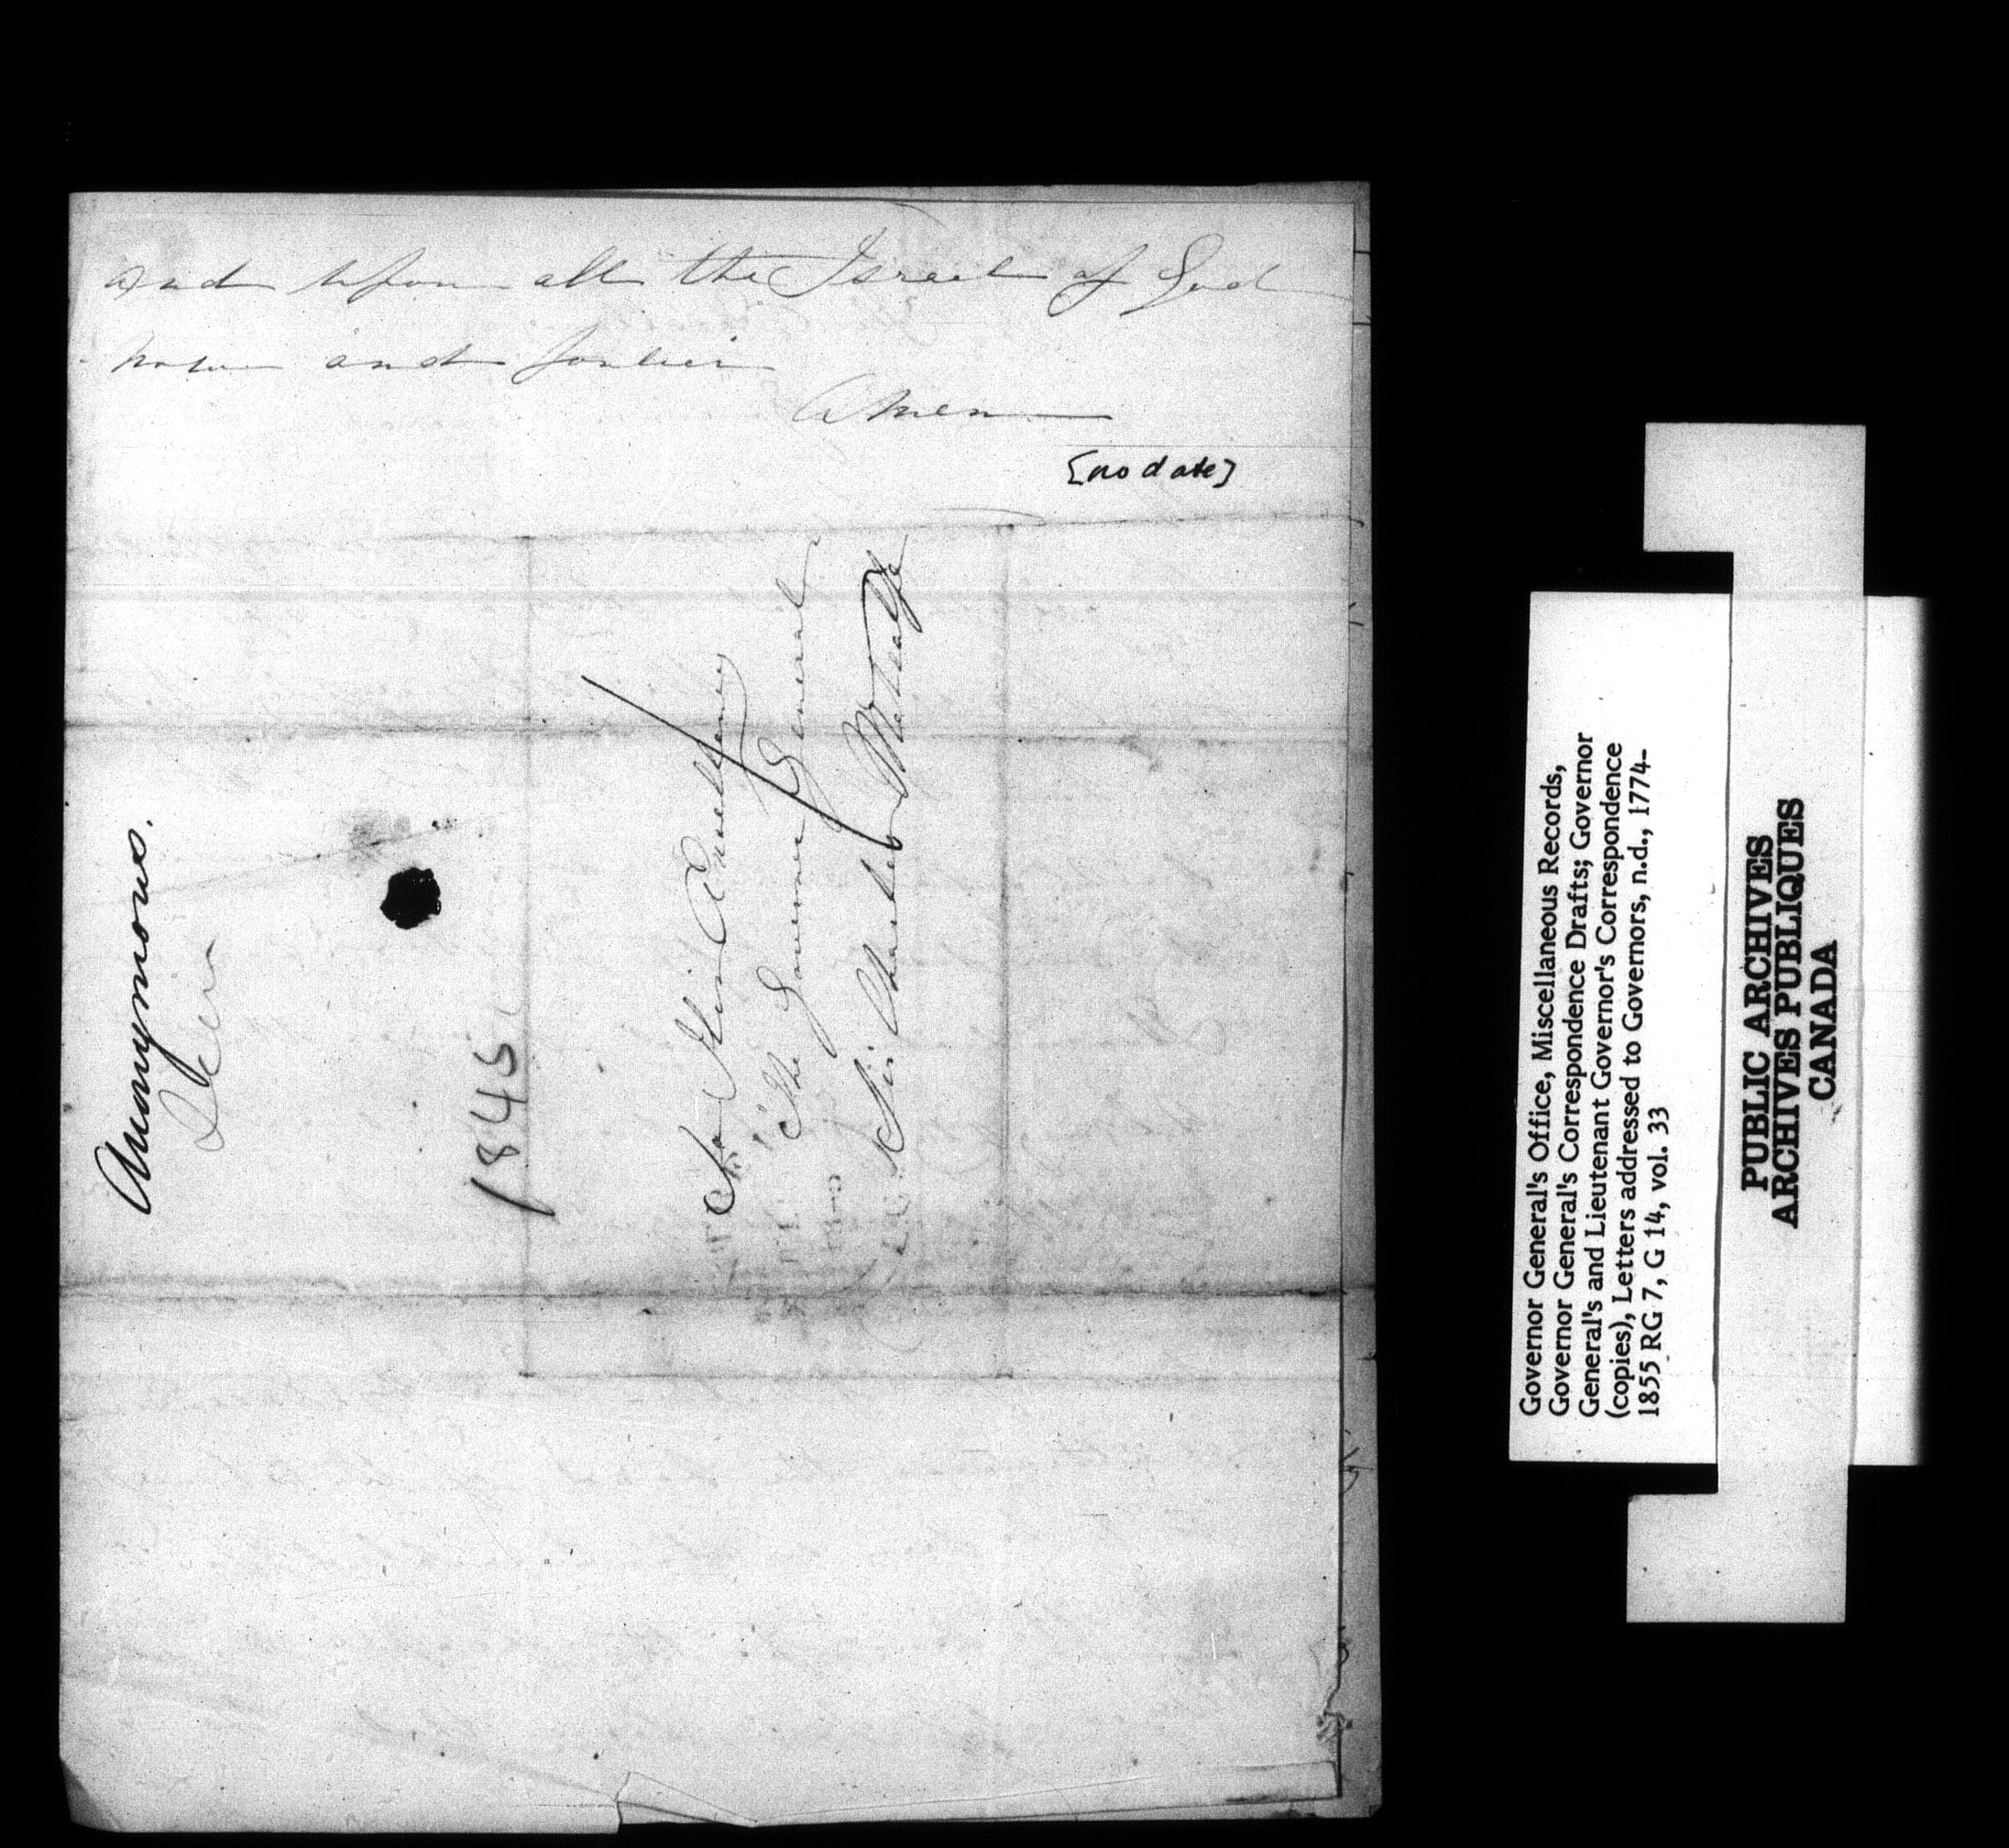 And upon all the Israel of God
now and forever
Amen
[no date]
Anonymous.
1845
To His Excellency
The Governor General
Sir Charles Metcalfe
Governor General's Office, Miscellaneous Records,
Governor General's Correspondence Drafts; Governor
General's and Lieutenant Governor's Correspondence
(copies), Letters addressed to Governors, n.d., 1774-
1855 RG 7, G 14, vol. 33
PUBLIC ARCHIVES
ARCHIVES PUBLIQUES
CANADA